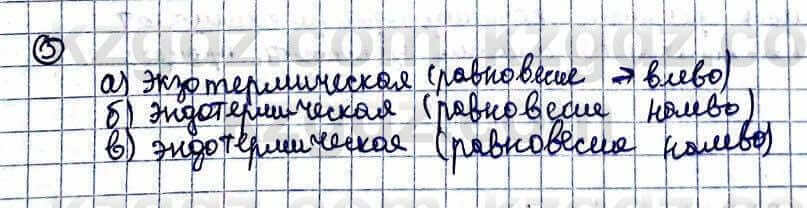 ⑤
а) экзотермическая (равновесие → влево)
б) эндотермическая (равновесие налево)
в) эндотермическая (равновесие налево)